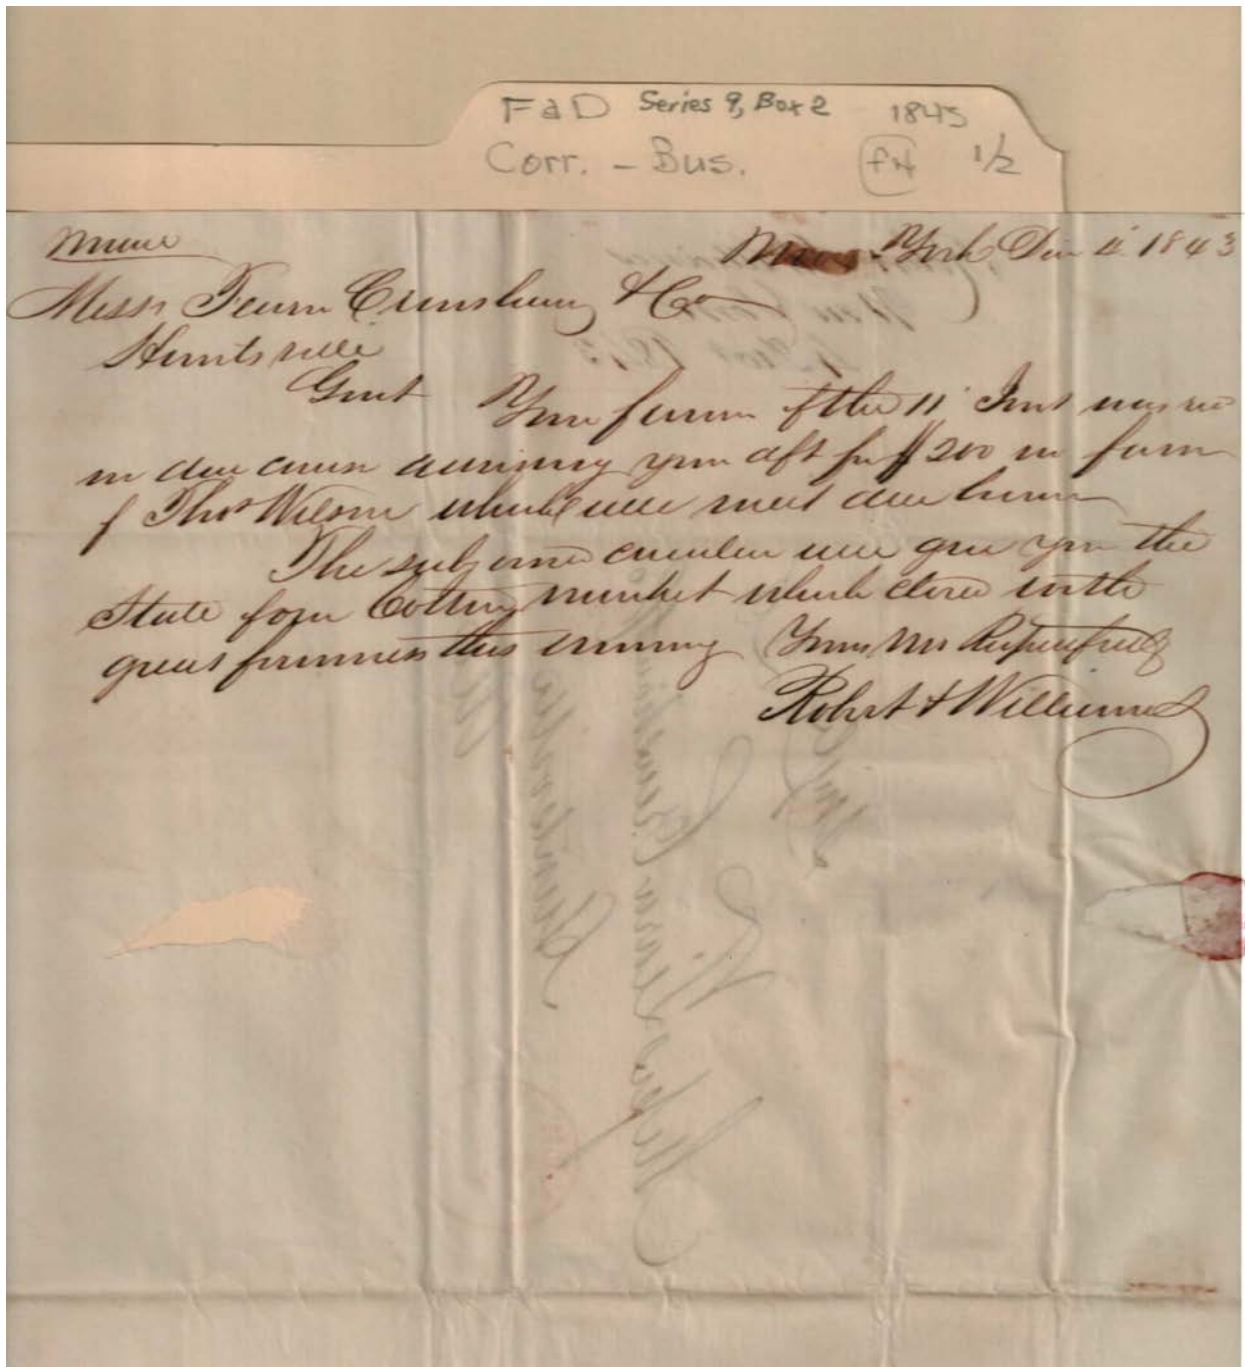 FaD Series 9, Box 2 1843
Corr. – Bus. 1/2
New York Dec 1843
Messrs Fearn Crenshaw & Co
Huntsville
Gent Your favor of the 11 Inst was rec
in due course advising your dft for $200 in favor
of Thos Wilson which will meet due honor
The subjoined circular will give you the
State of our Cotton market which closed with
great firmness this evening Yours Mo Respectfully
Robert & Williams